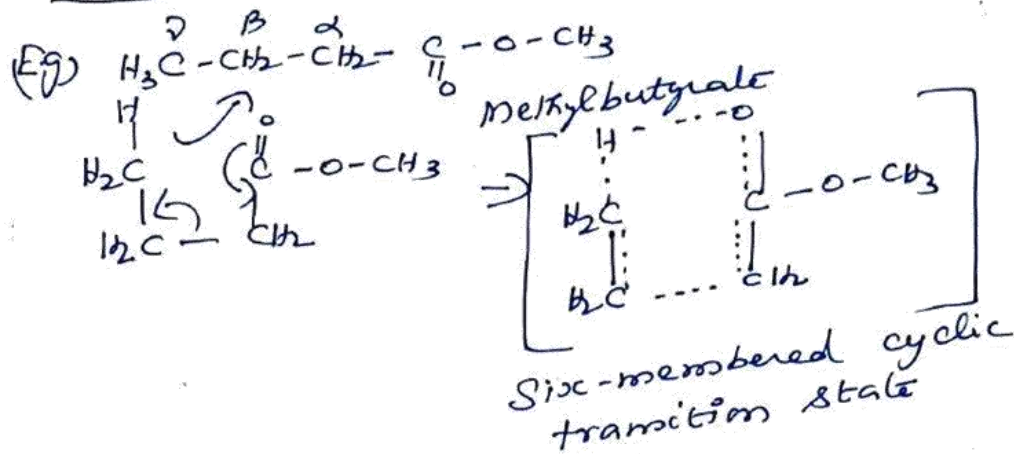 γ β α
(Eg) H3C-CH2-CH2-C-O-CH3
O
Methylbutyrate
H O H O
H2C C-O-CH3 ⇒ H2C C-O-CH3
H2C - CH2 H2C CH2
Six-membered cyclic
transition state